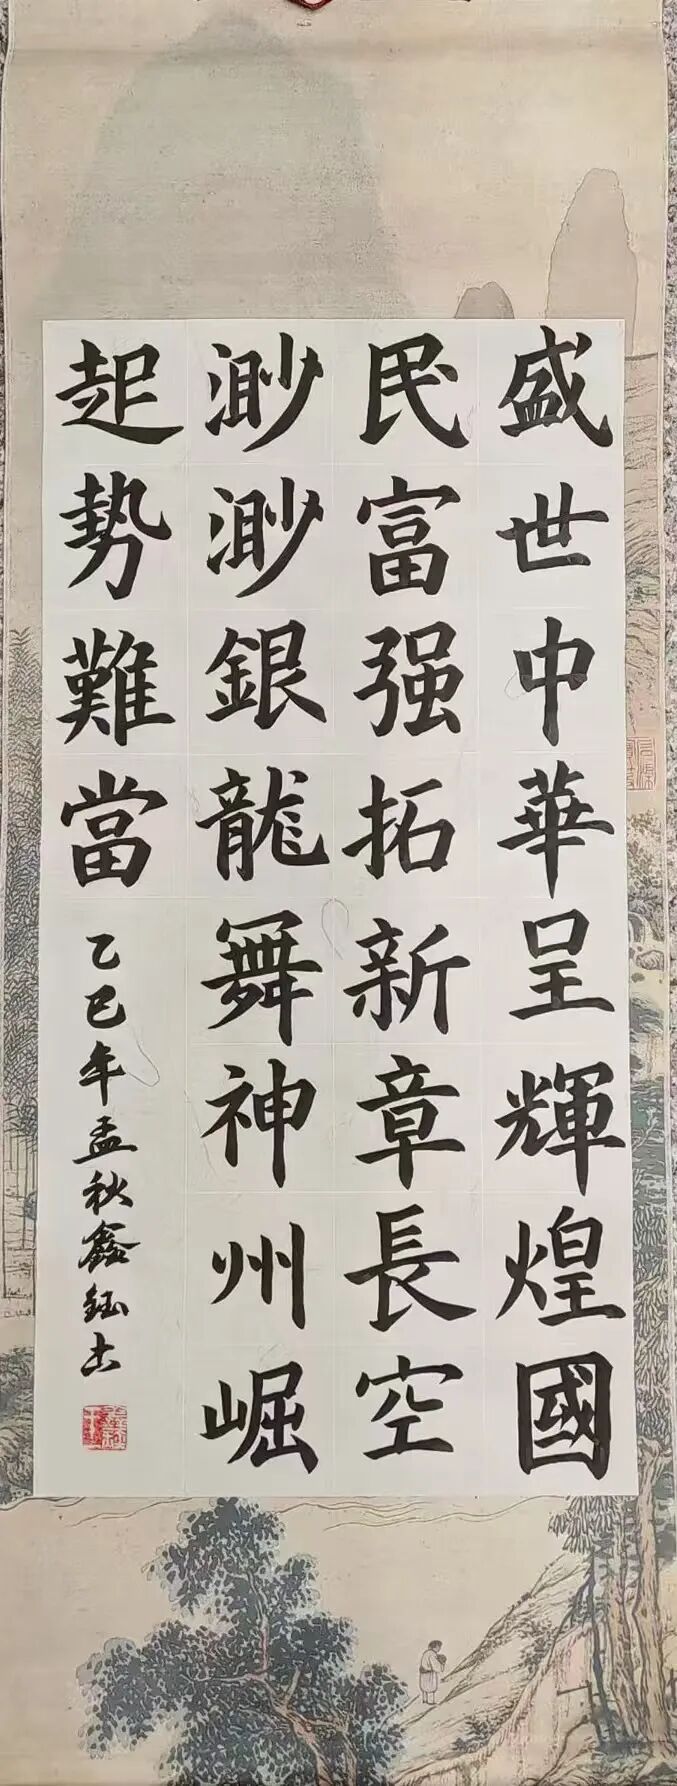 盛世中華呈輝煌國
民富强拓新章長空
渺渺銀龍舞神州崛
起勢難當
乙巳年孟秋鑫鈺书